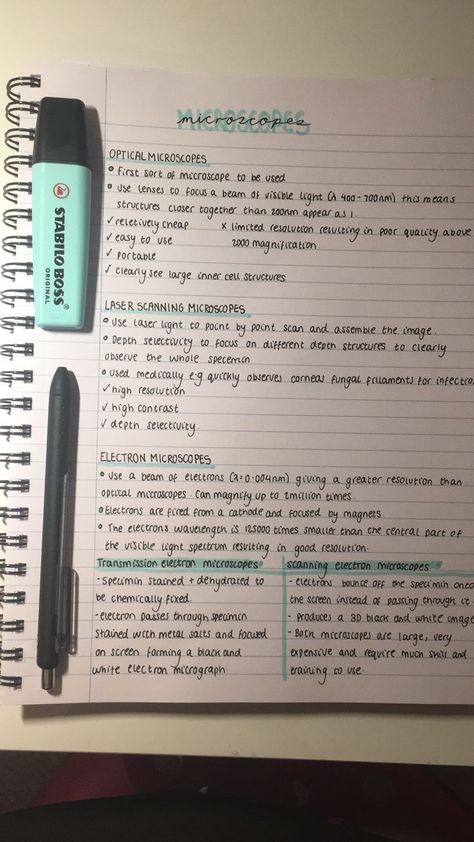 MICROSCOPES
microscopes
OPTICAL MICROSCOPES
• First sort of microscope to be used
• Use lenses to focus a beam of visible light (λ 400-700nm) this means
structures closer together than 200nm appear as 1.
✓ reletively cheap x limited resolution resulting in poor quality above
✓ easy to use 2000 magnification.
✓ portable
✓ clearly see large inner cell structures
LASER SCANNING MICROSCOPES
• Use laser light to point by point scan and assemble the image.
• Depth selectivity to focus on different depth structures to clearly
observe the whole specemin
• Used medically e.g quickly observes corneal fungal filaments for infection
✓ high resolution
✓ high contrast
✓ depth selectivity.
ELECTRON MICROSCOPES
• Use a beam of electrons (λ=0.004nm) giving a greater resolution than
optical microscopes. Can magnify up to 2million times.
• Electrons are fired from a cathode and focused by magnets.
• The electrons wavelength is 125000 times smaller than the central part of
the visible light spectrum resulting in good resolution.
Transmission electron microscopes
- specimin stained + dehydrated to
be chemically fixed.
- electron passes through specimin
stained with metal salts and focused
on screen forming a black and
white electron micrograph.
scanning electron microscopes
- electrons bounce off the specimin onto
the screen instead of passing through it.
- produces a 3D black and white image
- Both microscopes are large, very
expensive and require much skill and
training to use.
STABILO BOSS
ORIGINAL